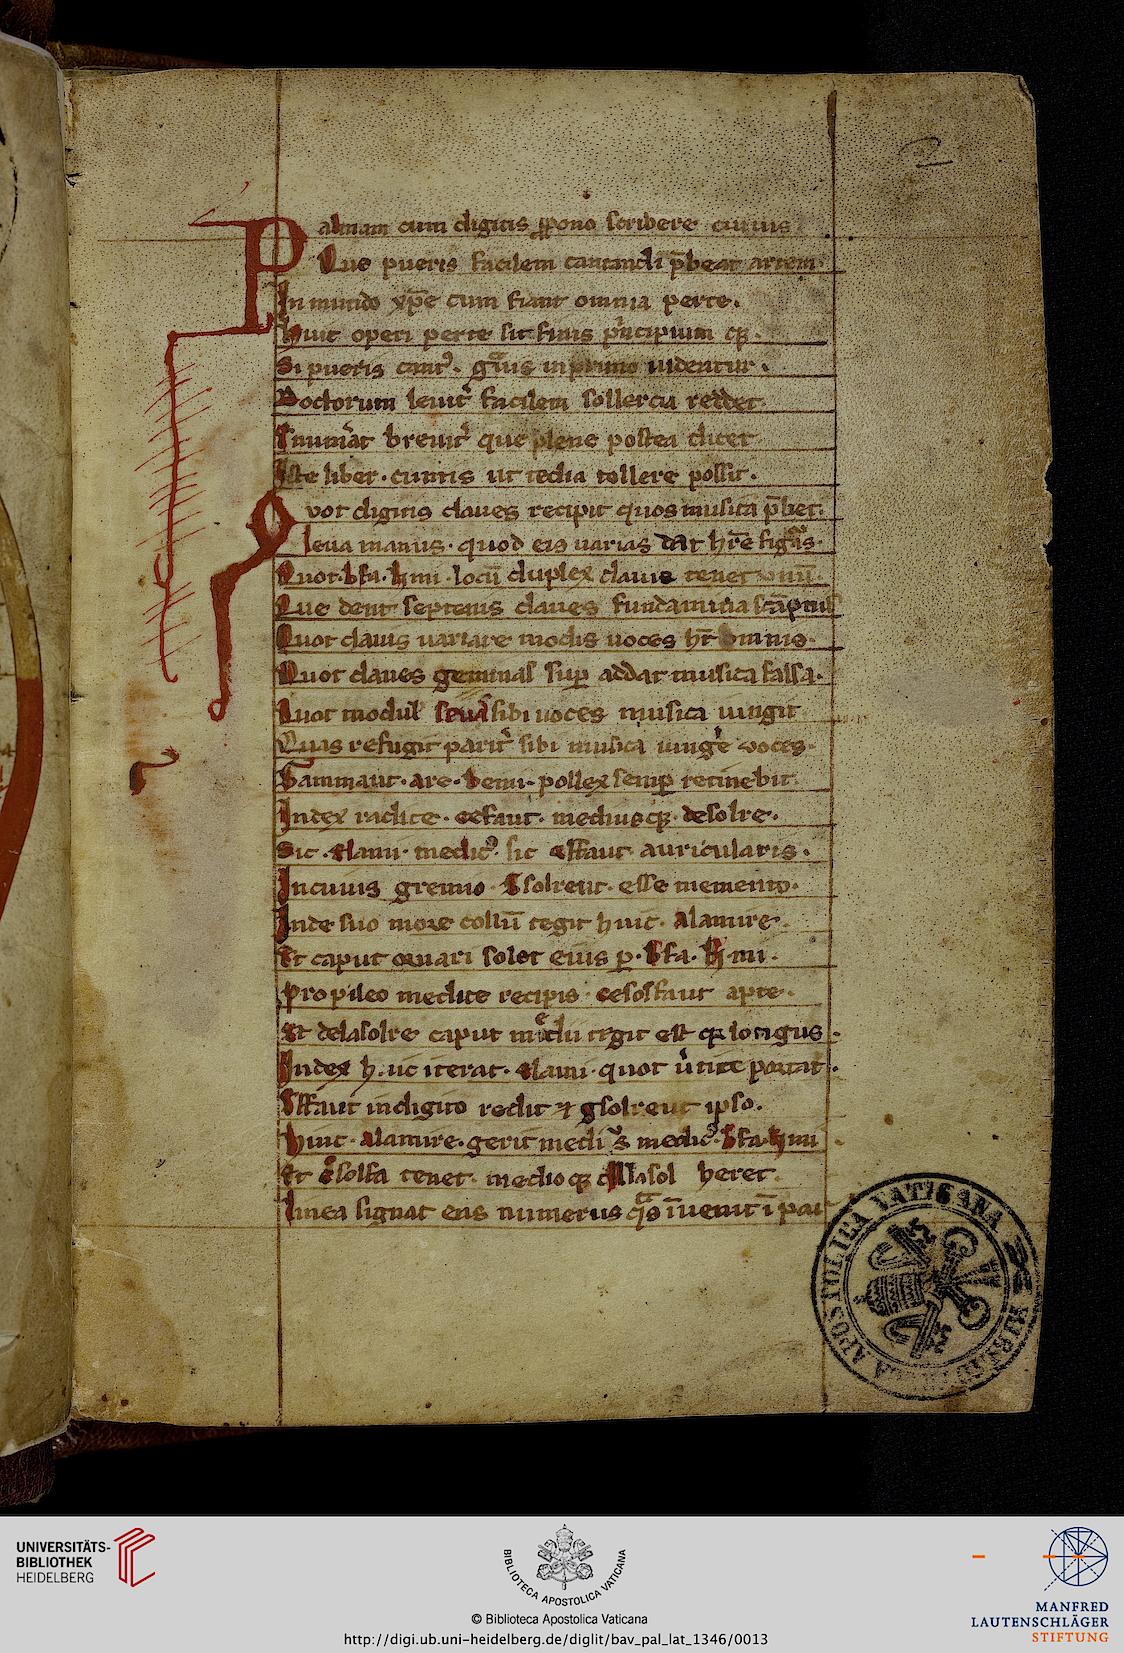 2
Palmam cum digitis ꝓpono scribere cuiuis
Que pueris facilem cantandi p̄beat artem
In mundo xp̄e cum fiant omnia per te.
Huic operi per te sit finis pͥncipium qꝫ.
Si pueris cantꝰ. gͣuis in primo uidentur.
Doctorum leuit᷑ facilem sollercia reddet
breuit᷑ que plene postea dicet
Iste liber. cunctis ut tedia tollere possit.
Quot digitis claues recipit quos musica p̄bet.
leua manus. quod eis uarias dat hr̄e figͣs.
Quot. b. fa. ♮ mi. locū duplex clauis tenet unū
Que dent septenis claues fundamina
Quot clauis uariare modis uoces hr̄ omnis.
Quot claues geminas suꝑ addat musica falsa.
Quot modul sibi uoces musica iungit
Quas refugit parit᷑ sibi musica iunge uoces.
Gammaut. are. bemi. pollex semꝑ retinebit
Index radice. cefaut. mediusqꝫ. desolre.
Sic. elami. medicꝰ. sic effaut. auricularis.
In cuius gremio. Gsolreut. esse memento.
Inde suo more collū tegit huic. alamire.
Et caput ornari solet eius ꝑ. bfa. ♮. mi.
Pro pileo medice recipis. cesolfaut apte.
Et delasolre caput medii tegit est qꝫ longus.
Index huic iterat. elami. quot u͛tice portat.
Effaut indigito redit ⁊ gsolreut ipso.
Huic. alamire. gerit medicꝰ. bfa. ♮mi
Et csolfa tenet. medio qꝫ dlasol heret.
linea signat eas numerus qͣs īuenit ī pari
BIBLIOTECA APOSTOLICA VATICANA
UNIVERSITÄTS-
BIBLIOTHEK
HEIDELBERG
BIBLIOTECA APOSTOLICA VATICANA
© Biblioteca Apostolica Vaticana
http://digi.ub.uni-heidelberg.de/diglit/bav_pal_lat_1346/0013
MANFRED
LAUTENSCHLÄGER
STIFTUNG